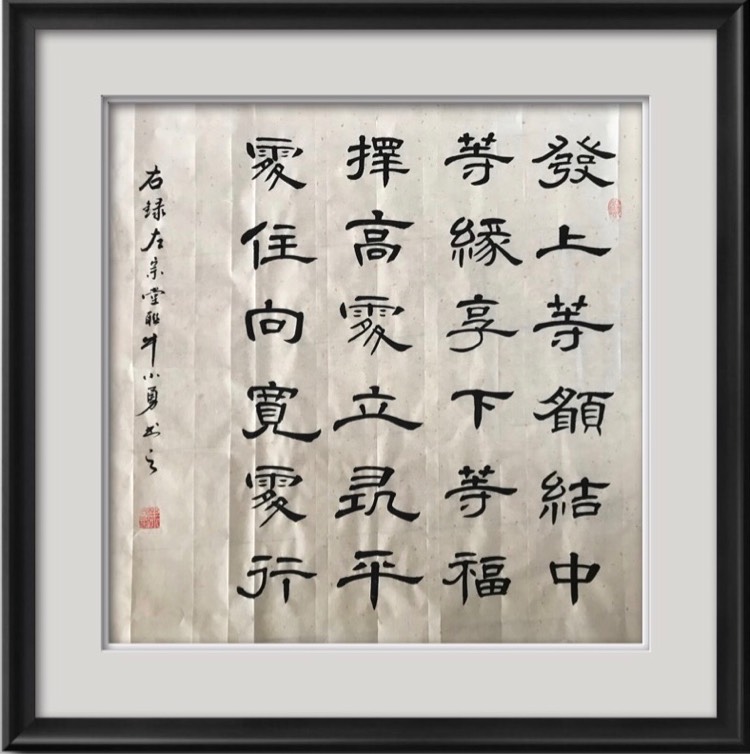 發上等願結中
等緣享下等福
擇高處立就平
處住向寬處行
右録左宗堂聯牛小勇書之